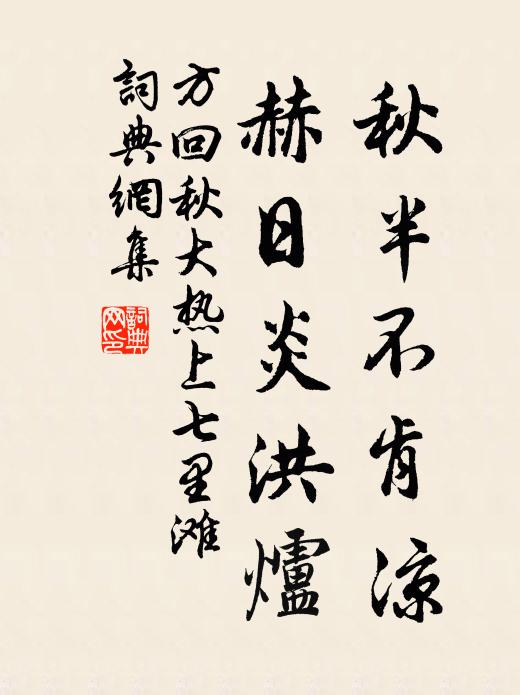 秋半不肯涼
赫日炎洪爐
方回秋大热上七里滩
詞典網集
詞典网印